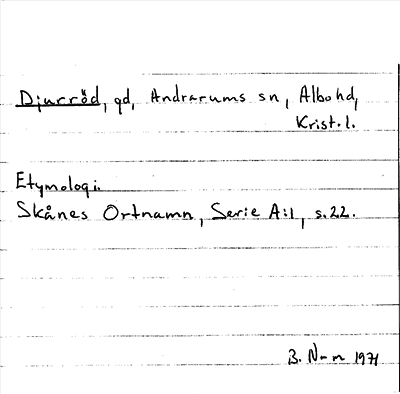 Djurröd, gd, Andrarums sn, Albo hd,
Krist. l.
Etymologi.
Skånes Ortnamn, Serie A:1, s. 22.
B. N-n 1971